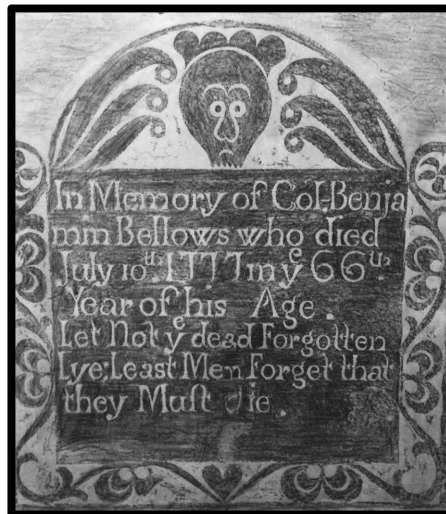 In Memory of Col, Benja
min Bellows who died
July 10th 1777 in ye 66th
Year of his Age.
Let Not ye dead Forgotten
Lye; Least Men Forget that
they Muſt die.